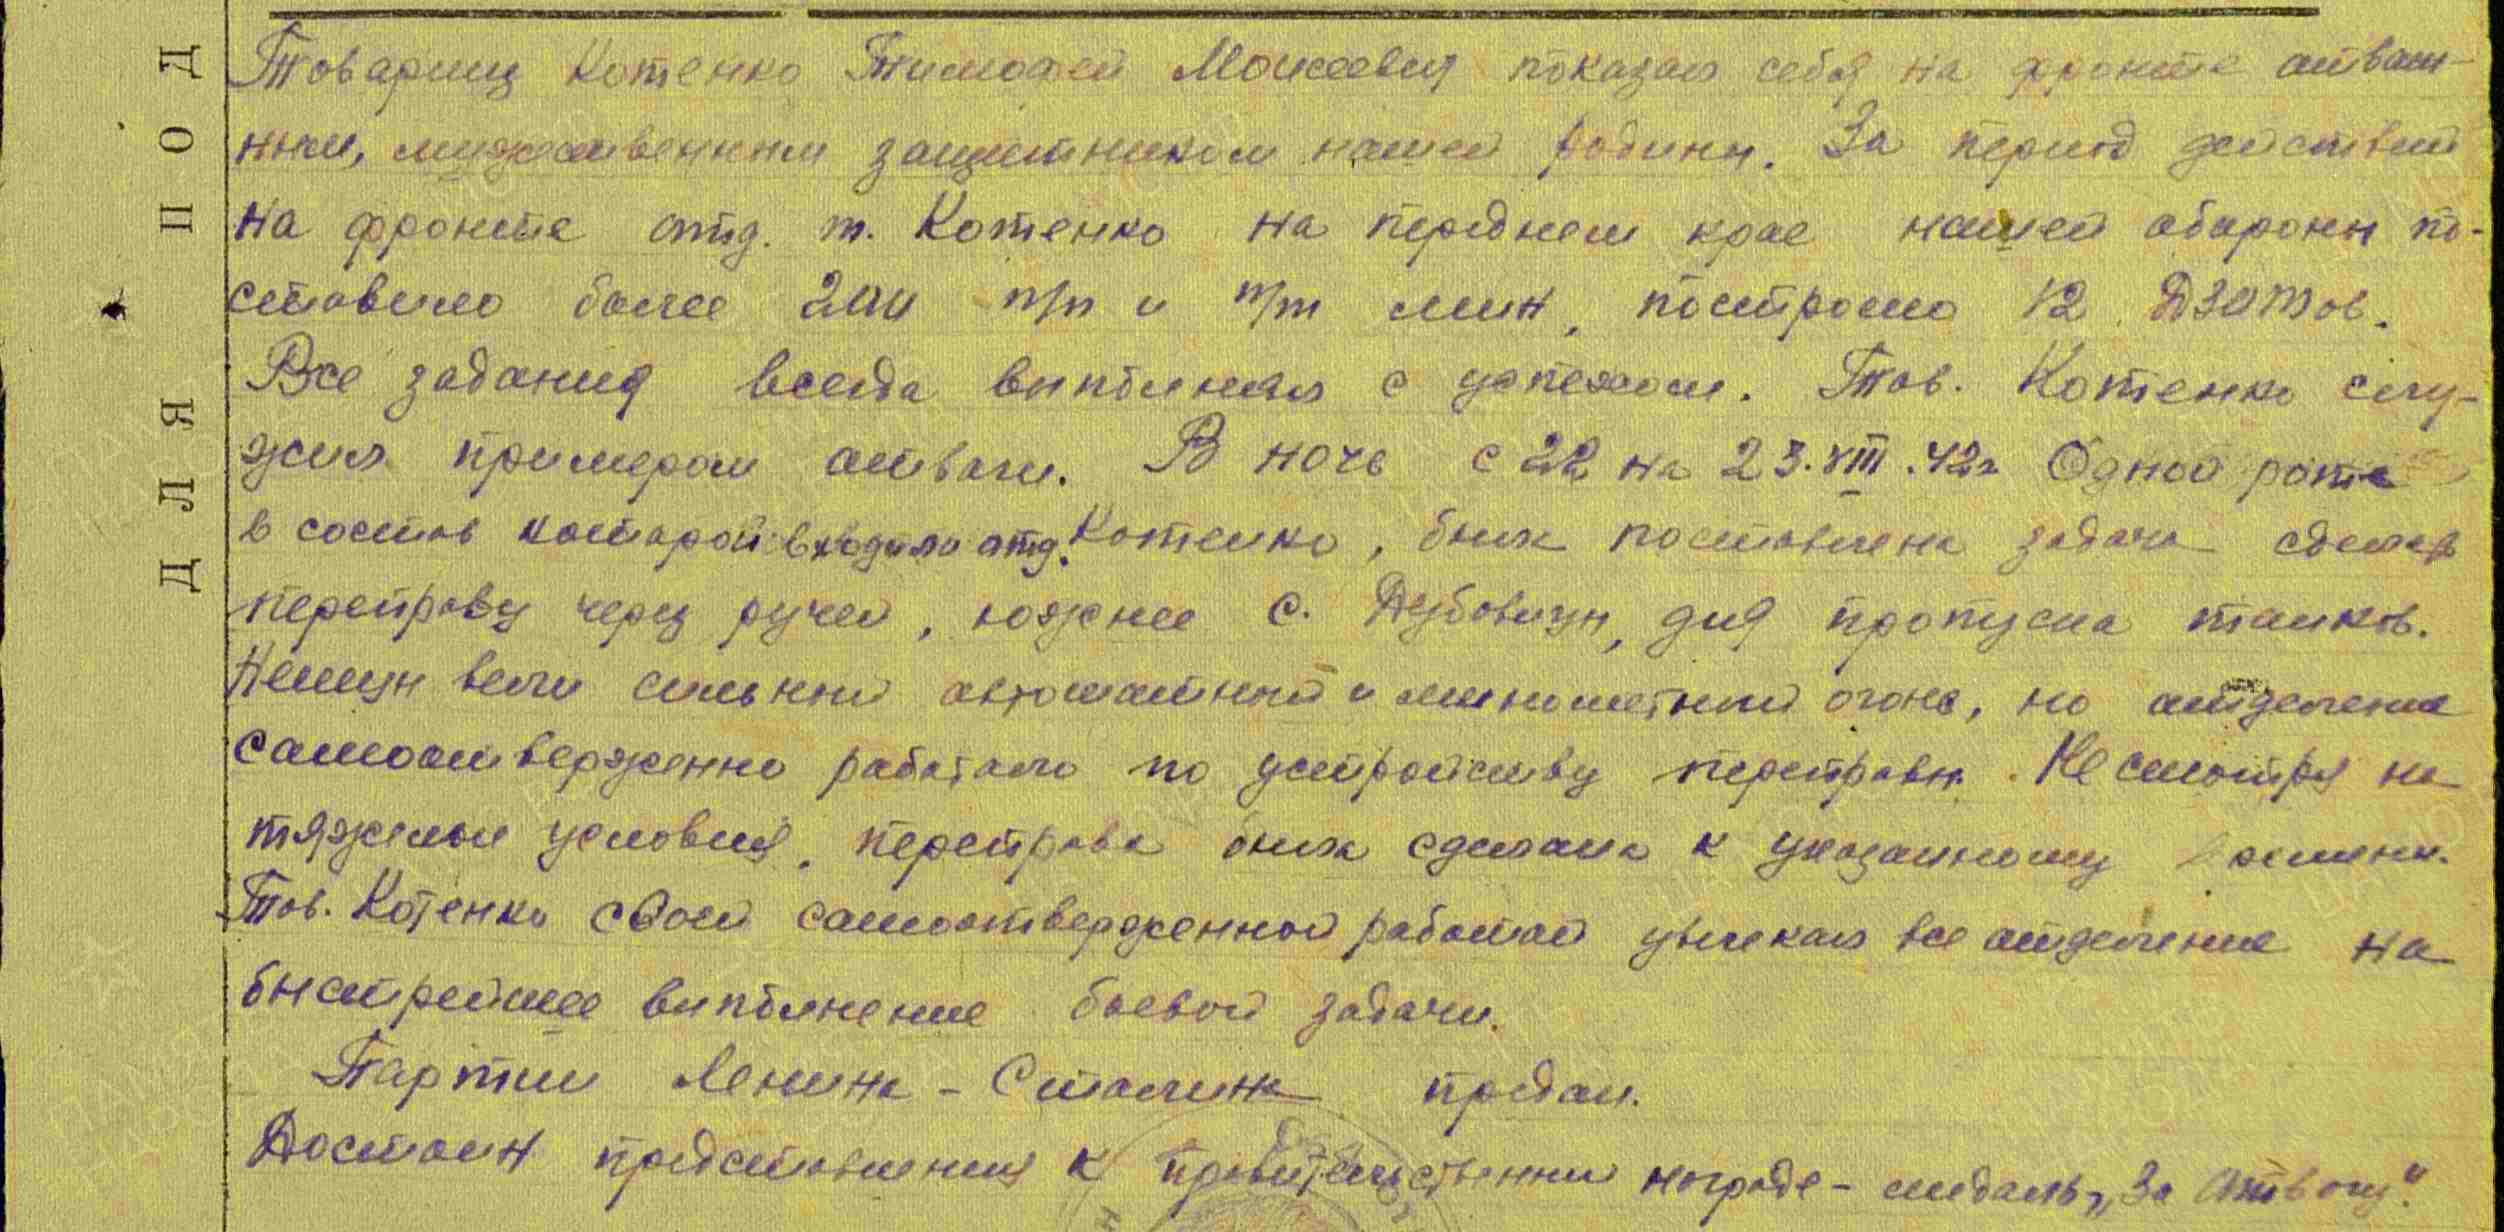 Товарищ Котенко Тимофей Моисеевич показал себя на фронте отваж-
ным, мужественным защитником нашей родины. За период действий
на фронте отд. т. Котенко на переднем крае нашей обороны по-
ставило более 2000 п/п и п/т мин, построило 12 ДЗОТов.
Все задания всегда выполнял с успехом. Тов. Котенко слу-
жил примером отваги. В ночь с 22 на 23.VIII.42г Одной роте
в состав которой входило отд. Котенко, была поставлена задача сделать
переправу через ручей, южнее с. Дубовицы, для пропуска танков.
Немцы вели сильный автоматный и минометный огонь, но отделение
самоотверженно работало по устройству переправы. Несмотря на
тяжелые условия, переправа была сделана к указанному времени.
Тов. Котенко своей самоотверженной работой увлекал все отделение на
быстрейшее выполнение боевой задачи.
Партии Ленина - Сталина предан.
Достоин представления к правительственной награде - медаль „За Отвагу".
ДЛЯ ПОД